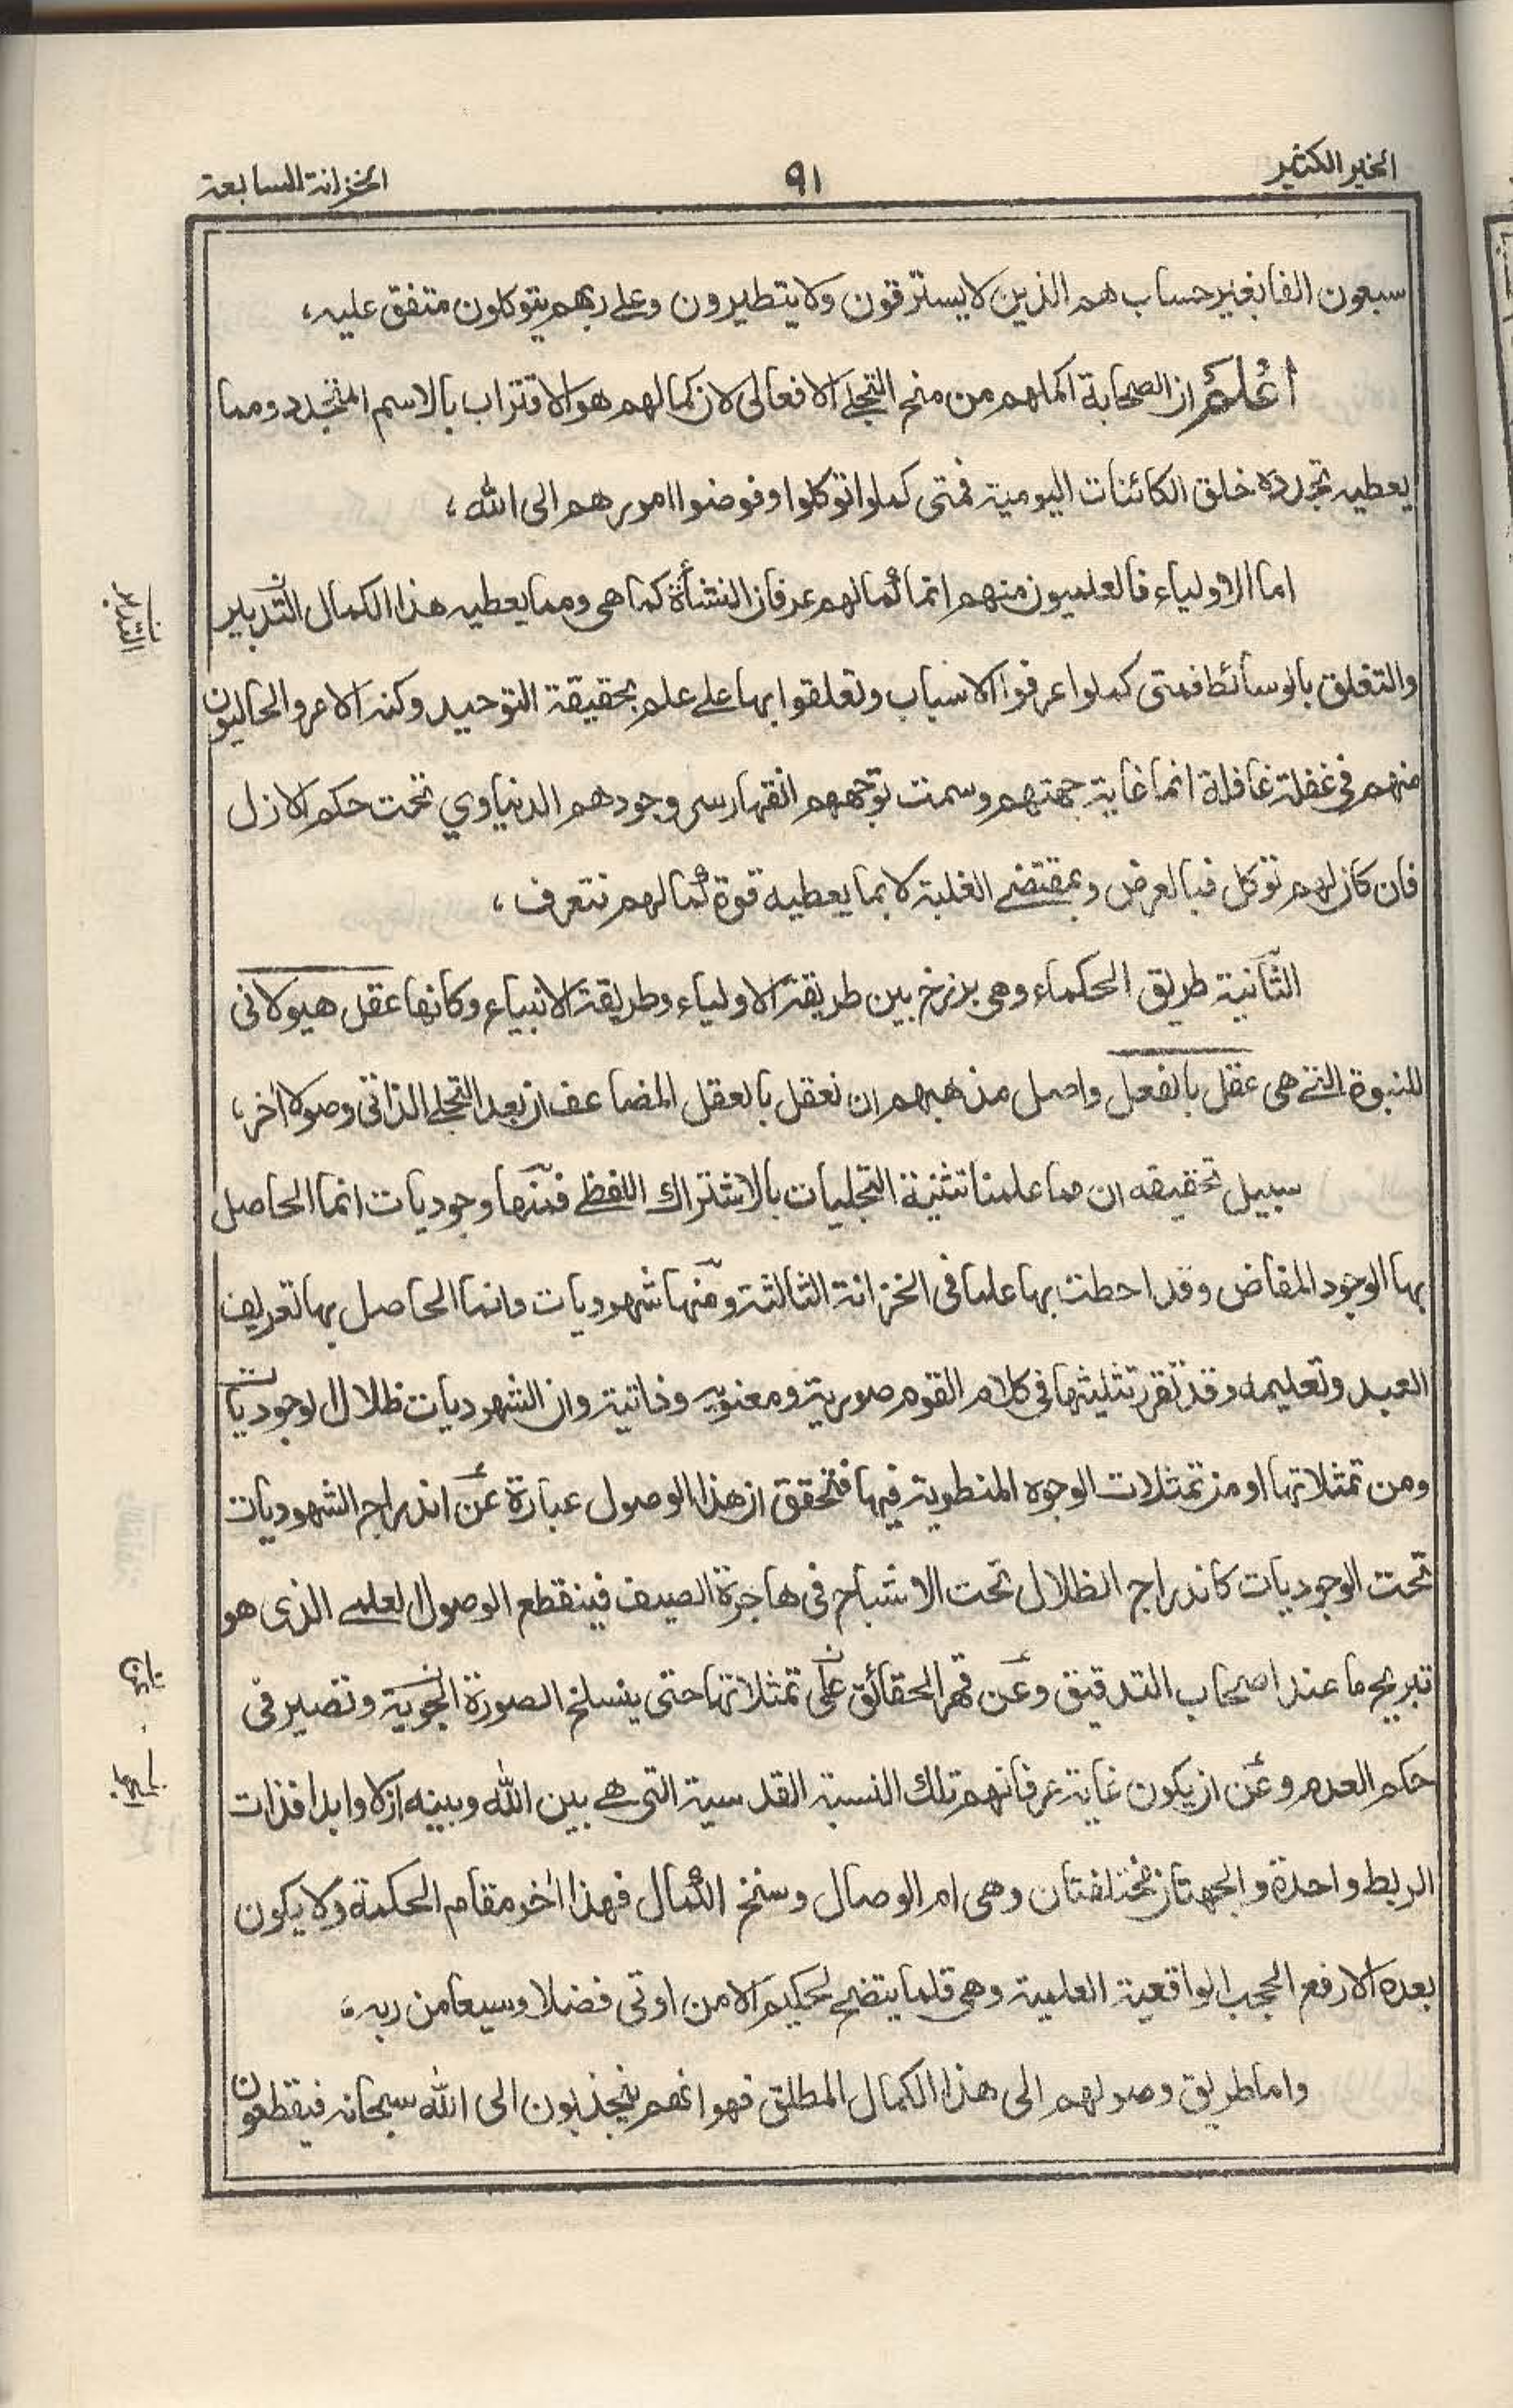 الخير الكثير
٩١
الخزانة السابعة
سبعون الفا بغير حساب هم الذين لا يسترقون ولا يتطيرون وعلى ربهم يتوكلون متفق عليه،
اعلم ان الصحابة اكملهم من منح التجلي الافعالي لان كمالهم هو الاقتراب بالاسم المتجدد ومما
يعطيه تجدده خلق الكائنات اليومية فمتى كملوا توكلوا وفوضوا امورهم الى الله،
اما الاولياء فالعلميون منهم انما كمالهم عرفان النشأة كما هى ومما يعطيه هذا الكمال التدبير
والتعلق بالوسائط فمتى كملوا عرفوا الاسباب وتعلقوا بها على علم بحقيقة التوحيد وكنه الامر والحاليون
منهم فى غفلة غافلة انما غاية جهتهم وسمت توجههم انقهار سر وجودهم الدنياوي تحت حكم الازل
فان كان لهم توكل فبالعرض وبمقتضى الغلبة لا بما يعطيه قوة كمالهم فتعرف،
الثانية طريق الحكماء وهى برزخ بين طريقة الاولياء وطريقة الانبياء وكانها عقل هيولانى
للنبوة التى هى عقل بالفعل واصل مذهبهم ان نعقل بالعقل المضاعف ان بعد التجلى الذاتى وصولا اخر،
سبيل تحقيقه ان مما علمنا تثنية التجليات بالاشتراك اللفظى فمنها وجوديات انما الحاصل
بها الوجود المفاض وقد احطت بها علما فى الخزانة الثالثة ومنها شهوديات وانما الحاصل بها تعريف
العبد وتعليمه وقد تقرر تثليثها فى كلام القوم صورية ومعنويه وذاتية وان الشهوديات ظلال الوجوديات
ومن تمثلاتها او من تمثلات الوجوه المنطوية فيها فتحقق ان هذا الوصول عبارة عن اندراج الشهوديات
تحت الوجوديات كاندراج الظلال تحت الاشباح فى هاجرة الصيف فينقطع الوصول العلمى الذى هو
تبريح ما عند اصحاب التدقيق وعن قهر الحقائق على تمثلاتها حتى ينسلخ الصورة النجوية وتصير فى
حكم العدم وعن ان يكون غاية عرفانهم تلك النسبة القدسية التى هى بين الله وبينه ازلا وابدا فذات
الربط واحدة والجهتان مختلفتان وهى ام الوصال وسنخ الكمال فهذا اخر مقام الحكمة ولا يكون
بعده الا رفع الحجب الواقعية العلمية وهى قلما يتضح لحكيم الا من اوتى فضلا وسيعا من ربه،
واما طريق وصولهم الى هذا الكمال المطلق فهو انهم ينجذبون الى الله سبحانه فيقطعون